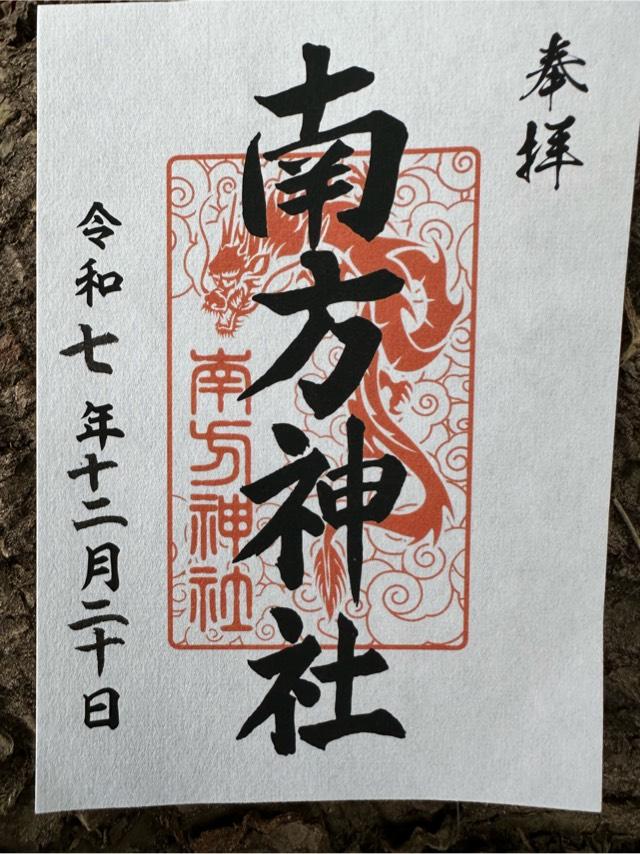 奉拝
南方神社
南方神社
令和七年十二月二十日